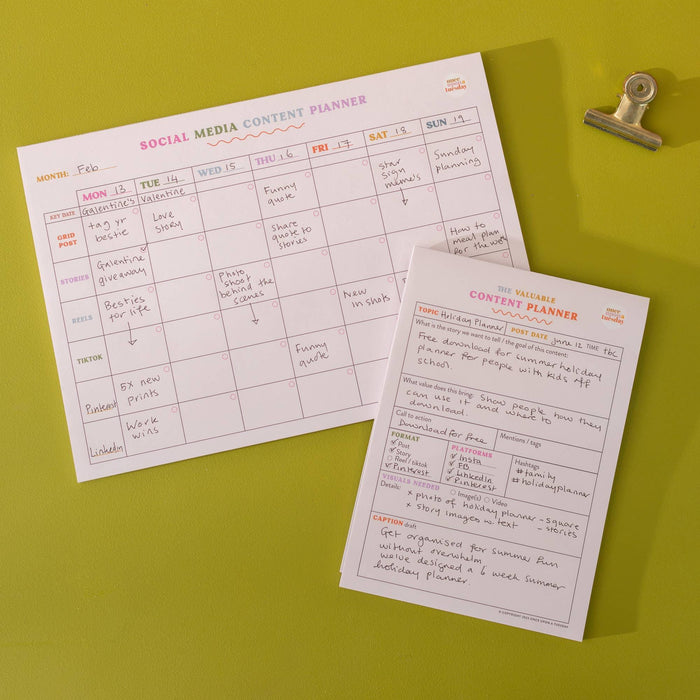 once
upon a
tuesday
SOCIAL MEDIA CONTENT PLANNER
MONTH: Feb
MON 13 TUE 14 WED 15 THU 16 FRI 17 SAT 18 SUN 19
KEY DATE Galentine's Valentine
GRID POST
tag yr bestie
Love story
Funny quote
star sign meme's
Sunday planning
STORIES
Galentine giveaway
Share quote to stories
How to meal plan for the week
REELS
Besties for life
Photo shoot behind the scenes
New in shots
TIKTOK
Funny quote
Pinterest
5x new prints
Linkedin
Work wins
THE VALUABLE
CONTENT PLANNER
once
upon a
tuesday
TOPIC Holiday Planner POST DATE june 12 TIME tbc
What is the story we want to tell / the goal of this content:
Free download for summer holiday
planner for people with kids off
school.
What value does this bring: Show people how they
can use it and where to
download.
Call to action
Download for free
Mentions / tags
FORMAT
Post
Story
Reel / tiktok
Pinterest
PLATFORMS
Insta
FB
Linkedin
Pinterest
Hashtags
#family
#holidayplanner
VISUALS NEEDED Image(s) Video
Details:
x photo of holiday planner - square
x story images w. text - stories
CAPTION draft
Get organised for summer fun
without overwhelm
we've designed a 6 week summer
holiday planner.
© COPYRIGHT 2023 ONCE UPON A TUESDAY